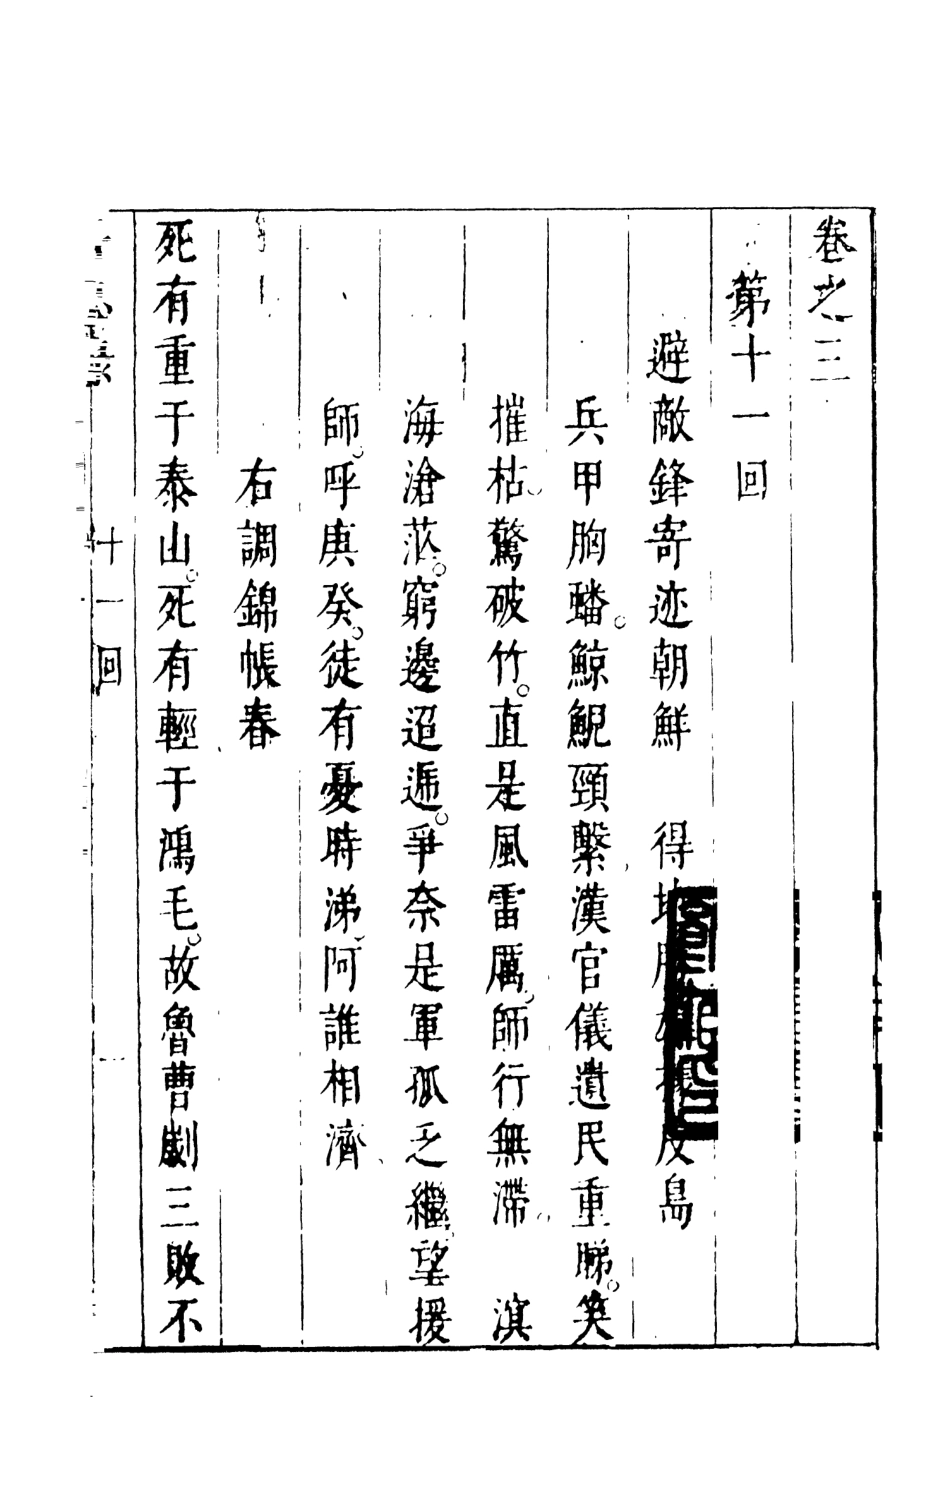 卷之三
第十一回
避敵鋒寄迹朝鮮　得地　　　皮島
兵甲胸蟠。鯨鯢頸繫漢官儀遺民重睇。笑
摧枯。驚破竹。直是風雷厲。師行無滯。　溟
海滄茫。窮邊迢遞。爭奈是軍孤乏繼望援
師。呼庚癸。徒有憂時涕阿誰相濟
右調錦帳春
死有重于泰山。死有輕于鴻毛。故魯曹劌三敗不
十一回